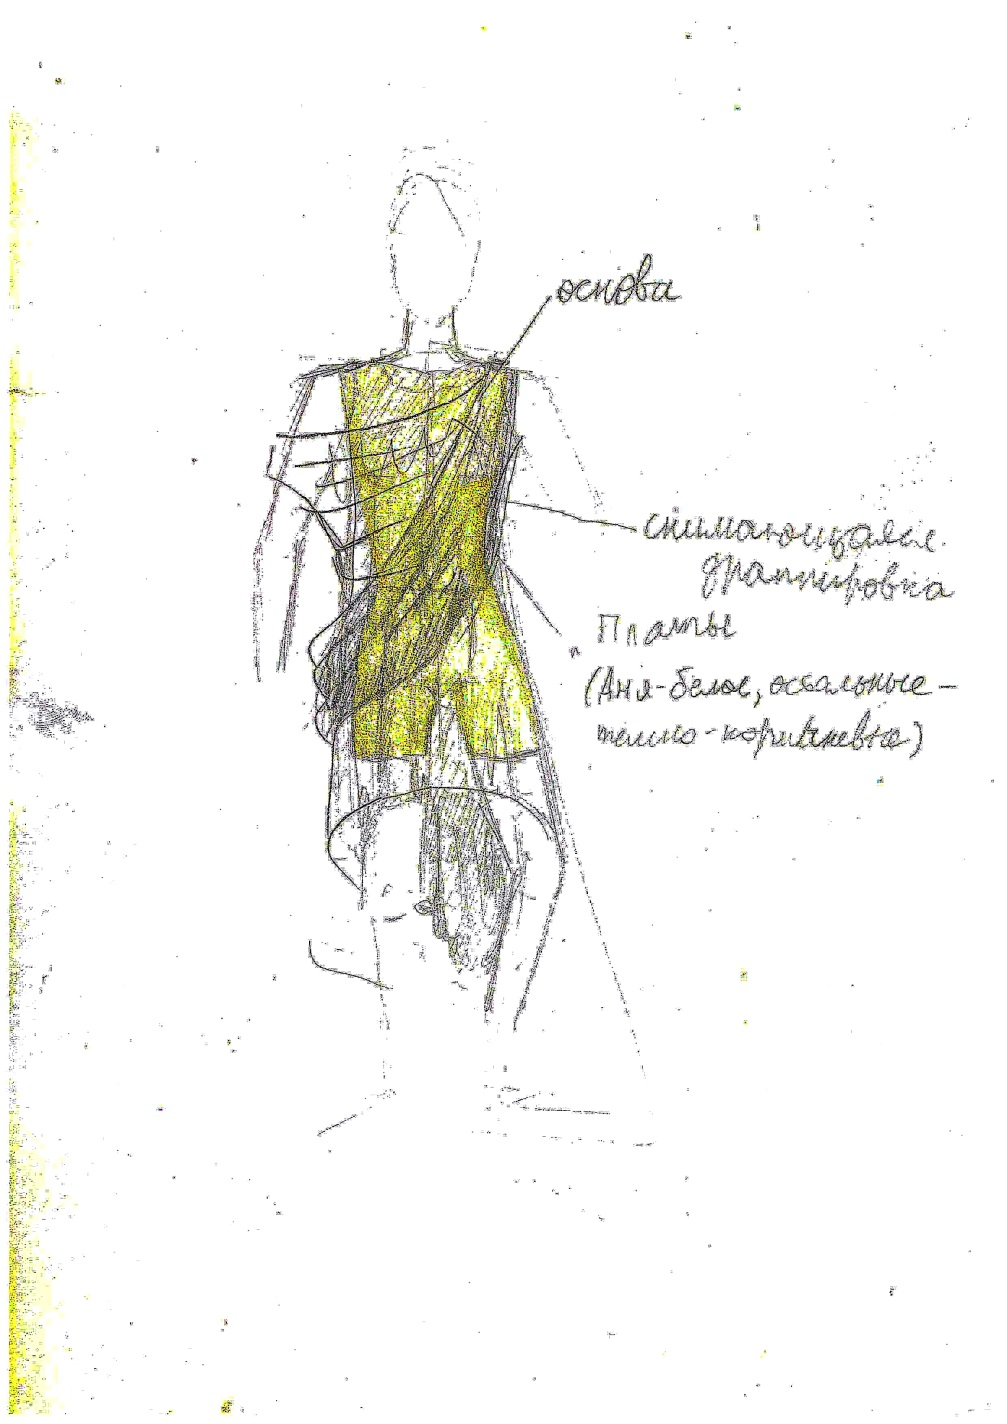 основа
снимающаяся
драппировка
Платье
(Аня-белое, остальные -
темно-коричневые)